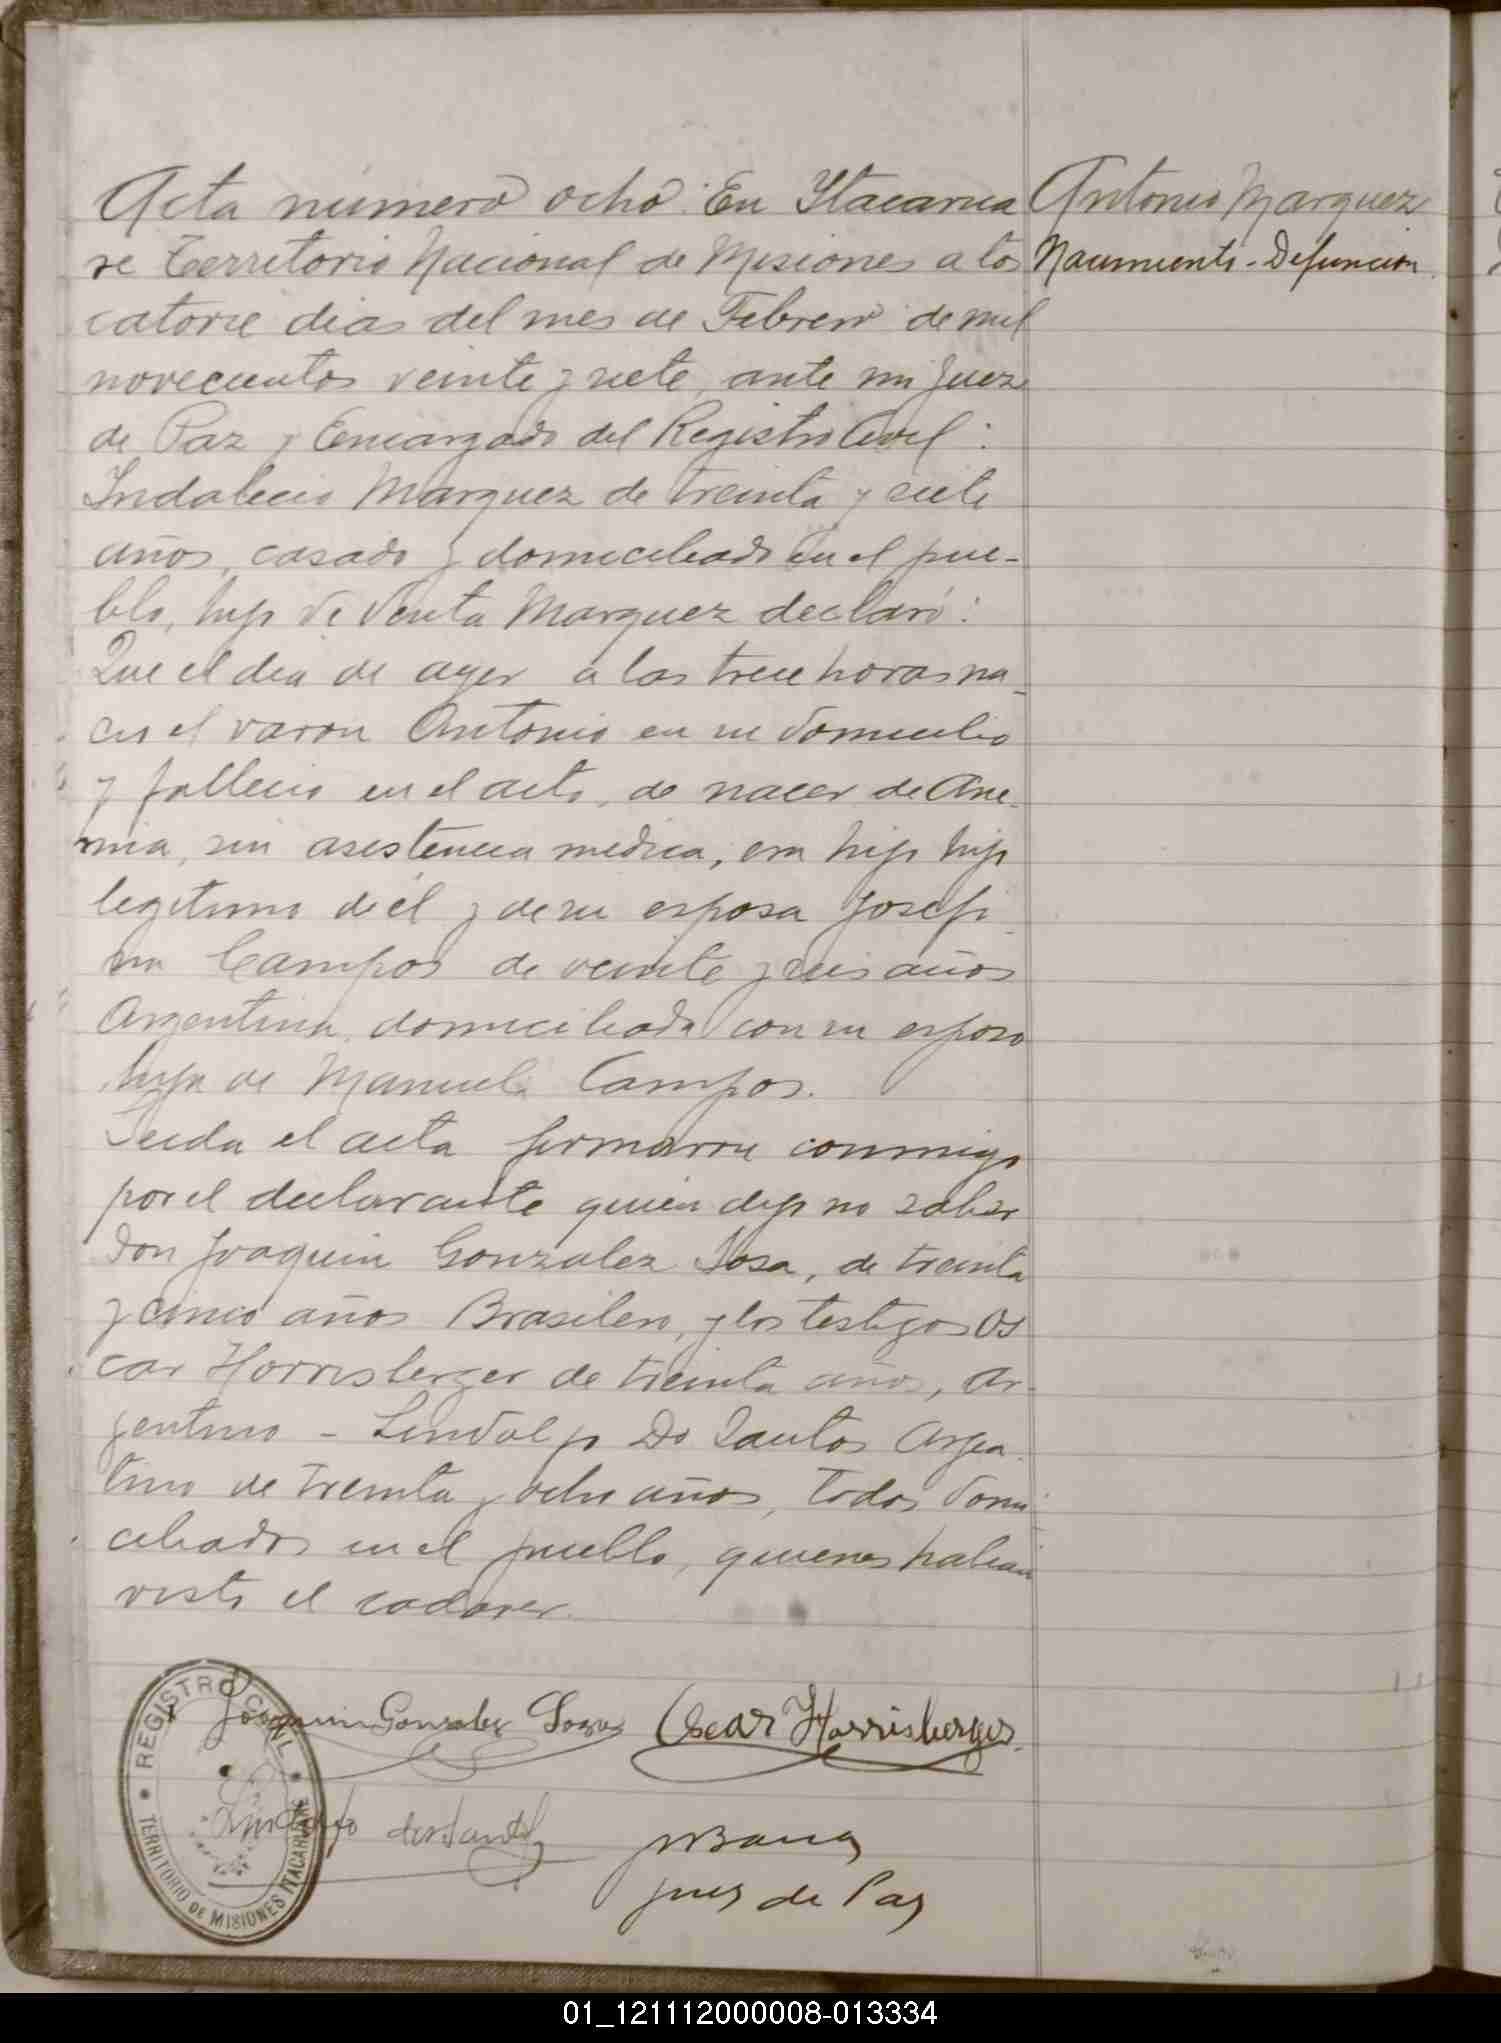 Acta número ocho: En Ytacarua
re Territorio Nacional de Misiones a los
catorce dias del mes de Febrero de mil
novecientos veinte y siete, ante mi Juez
de Paz y Encargado del Registro Civil:
Indalecio Marquez de treinta y siete
años, casado y domiciliado en el pue-
blo, hijo de Marquez declaró:
Que el dia de ayer a las trece horas na-
cio el varon Antonio en su domicilio
y fallecio en el acto, de nacer de Ane-
mia, sin asistencia medica, era hijo hijo
legitimo de él y de su esposa Josefi-
na Campos de veinte y seis años
Argentina, domiciliada con su esposo
hija de Manuela Campos.
Leida el acta firmaron conmigo
por el declarante quien dijo no saber
don Joaquin Gonzalez Sosa, de treinta
y cinco años Brasilero, y los testigos Os
car Horrisberger de treinta años, Ar-
gentino - Lindolfo Do Santos Argen-
tino de treinta y ocho años, todos domi-
ciliados en el pueblo, quienes habian
visto el cadaver.
Antonio Marquez
Nacimiento - Defuncion
Joaquin Gonzalez Oscar Horrisberger
REGISTRO CIVIL
TERRITORIO DE MISIONES ITACARUARE
Lindolfo dos Santos
Juez de Paz
01_121112000008-013334